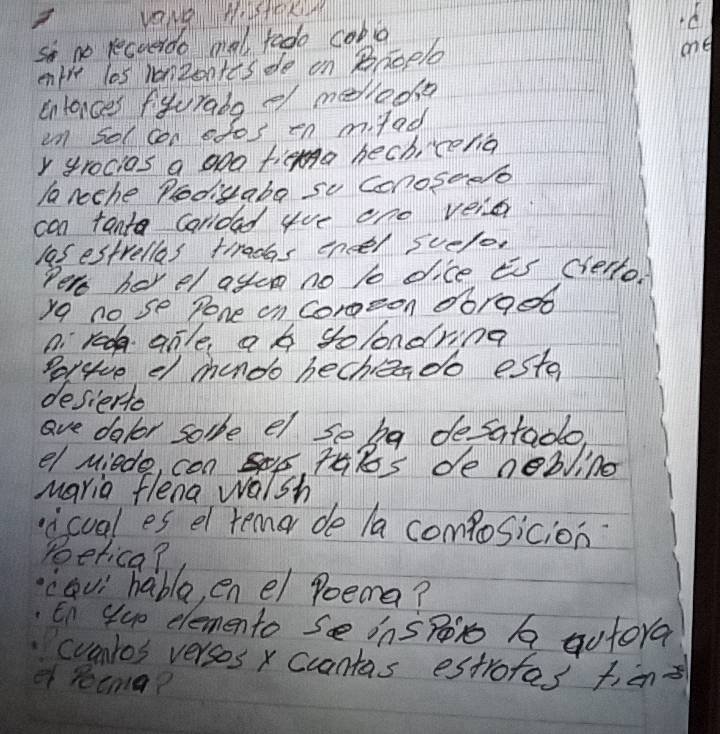 si no recuerdo mal, todo cabia
entre los horizontes de un Pañoelo
entonces figuraba el mediodia
un sol con en mitad
y grocias a una tierna hechiceria
la noche Prodigaba su
con tanta caridad que uno veia
las estrellas tiradas en el suelo.
Pero hoy el agua no lo dice Es cierto.
ya no se Pone un corazon dorado
ni anle a la golondrina
Porque el mundo hechizado esta
desierto
Que dolor sobre el se ha desatado
el miedo, con sus de neblino
Maria Elena Walsh
•¿cual es el tema de la comPosicion
Poetica?
•¿Qui habla, en el Poema?
•En que elemento se insPiro la autora
•Cuantos versos y cuantas estrofas tiene
el Poema?
.¿
me